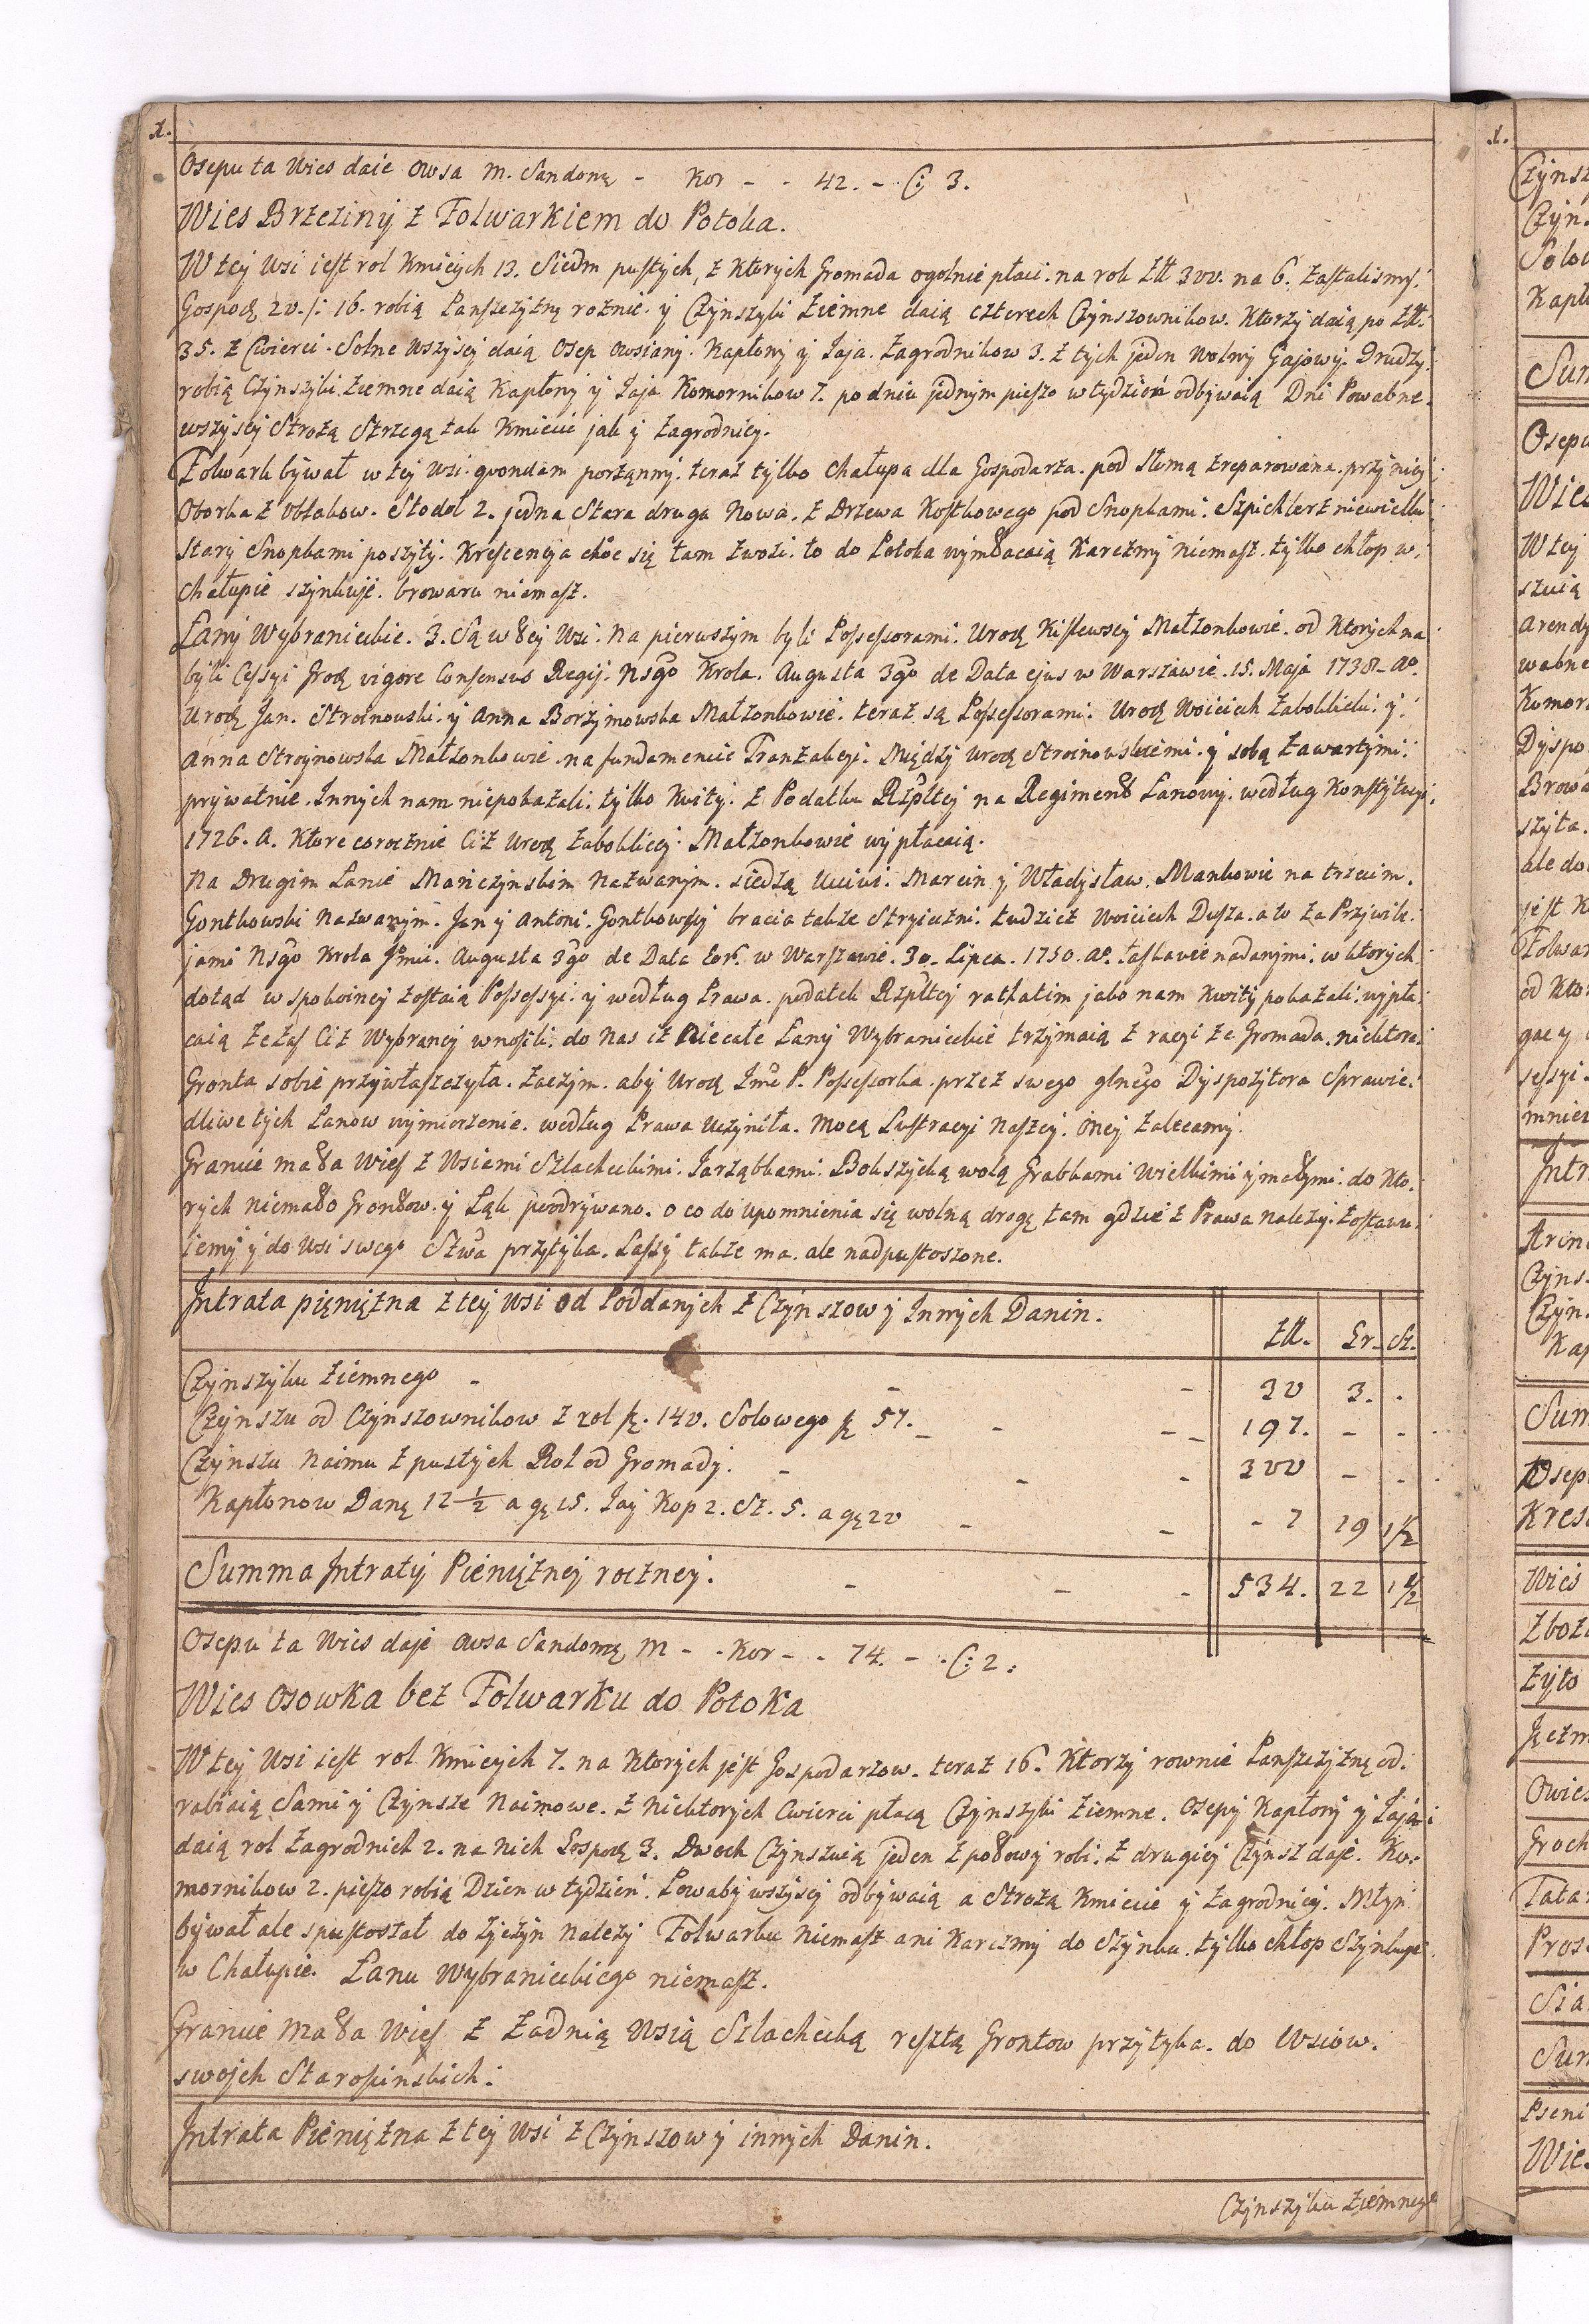 Osepu ta Wies daie Owsa M. Sandomę - Kor - - 42. - C: 3.
Wies Brzeziny z Folwarkiem do Potoka.
W tey Wsi iest rol Kmiecych 13. Siedm pustych, z ktorych Gromada ogolnie płaci. na rok Złł 300. na 6. zastalismy.
Gospodę 20. /: 16. robią Panszczyznę roznie. y Czynszyki Ziemne daią czterech Czynszownikow. Ktorzy daią po Złł.
35. z Cwierci. Solne wszyscy daią Osep Owsiany. Kapłony y Jaja. Zagrodnikow 3. z tych jeden Wolny Gajowy. Drudzy
robią Czynszyki Ziemne daią Kapłony y Jaja Komornikow 7. po dniu jednym pieszo w tydzien odbywaią Dni Powabne.
wszyscy Strozą Strzegą tak Kmiecie jak y Zagrodnicy.
Folwark bywał w tey Wsi. quondam porządny. teraz tylko Chałupa dla Gospodarza. pod Słomą zreparowana. przy niey
Oborka z Oblakow. Stodoł 2. jedna Stara druga Nowa. z Drzewa Kostkowego pod Snopkami. Szpichlerz niewielki
stary Snopkami poszyty. Krescencya choc się tam zwozi. to do Potoka wymłacaią Karczmy niemasz. tylko chłop w
chałupie szynkuje. browaru niemasz.
Łany Wybranieckie. 3. Są w tey Wsi. Na pierwszym byli Possessorami. Urodz Kislewscy Małzonkowie. od Ktorych na
byli Cessyi Grodz vigore Consensus Regij. Nsgo Krola. Augusta 3go de Data ejus w Warszawie. 15. Maja 1738. Ao.
Urodz Jan. Stroinowski. y Anna Borzymowska Małzonkowie. teraz są Possessorami. Urodz Woiciech Zaboklicki. y
Anna Stroynowska Małzonkowie. na fundamencie Tranzakcyi. Między Urodz Stroinowskiemi. y sobą Zawartymi.
prywatnie. Innych nam niepokazali. tylko Kwity. z Podatku Rzpltey na Regiment Łanowy. według Konstytucyi
1726. A. Ktore corocznie Ciż Urodz Zaboklicy. Małzonkowie wypłacaią.
Na Drugim Łanie Mańczynskim Nazwanym. siedzą Uciwi. Marcin y Władysław. Mankowie na trzecim.
Gontkowski Nazwanym. Jan y Antoni. Gontkowscy bracia takze Stryieczni. tudziez Woiciech Dusza. a to za Przywile
jami Nsgo Krola Jmci. Augusta 3go de Data Eor. w Warszawie. 30. Lipca. 1750. Ao. łaskawie nadanymi. w ktorych
dotąd w spokoiney zostaią Possessyi. y według Prawa. podatek Rzpltey rathatim jako nam Kwity pokazali. wypła
caią Ze zas Ciż Wybrancy wnosili. do Nas iz Niecałe Łany Wybranieckie trzymaią z racyi ze Gromada. niektore
Gronta sobie przywłaszczyła. Zaczym. aby Urodz Jmć P. Possessorka. przez swego glnego Dyspozytora Sprawie
dliwe tych Łanow wymierzenie. według Prawa Uczyniła. Mocą Lustracyi Naszey. Oney Zalecamy.
Granice ma ta Wies z Wsiami Szlacheckimi. Jarząbkami. Bokszycką wolą Grabkami Wielkimi y małymi. do Kto
rych niemało Grontow. y Łąk poodrywano. o co do upomnienia się wolną drogę tam gdzie z Prawa nalezy. zostawu
iemy y do Wsi swego Stwa przytyka. Lassy takze ma. ale nadpustoszone.
Intrata pięniężna z tey Wsi od Poddanych z Czynszow y Innych Danin. Złł. Gr. Sz.
Czynszyku Ziemnego - - - 30 3. .
Czynszu od Czynszownikow z rol p. 140. Solowego p 57. - - - 197. - .
Czynszu Naimu z pustych Rol od Gromady. - - - 300 - .
Kapłonow Danę 12 1/2 a gę 15. Jay Kop 2. Sz. 5. a gę 20 - - - 7 19 1 1/2
Summa Intraty Pieniężney roczney. - - - 534. 22 1 1/2
Osepu ta Wies daje Owsa Sandomę M - - Kor - - 74. - . C: 2.
Wies Osowka bez Folwarku do Potoka
W tey Wsi iest rol Kmiecych 7. na Ktorych jest Gospodarzow. teraz 16. Ktorzy rownie Panszczyznę od
rabiaią Sami y Czynsze Naimowe. z niektorych Cwierci płacą Czynszyki Ziemne. Osepy Kapłony y Jaja
daią rol Zagrodnich 2. na nich Gospodę 3. Dwoch Czynszuią jeden z połowy robi. z drugiey Czynsz daje. Ko
mornikow 2. pieszo robią Dzien w tydzień. Powaby wszyscy odbywaią a Strozą Kmiecie y Zagrodnicy. Młyn
bywał ale spustoszał do Zyczyn nalezy Folwarku niemasz ani Karczmy do Szynku. tylko chłop Szynkuje
w Chałupie. Łanu Wybranieckiego niemasz.
Granice ma ta Wies z Zadnią Wsią Szlachecką resztą Grontow przytyka. do Wsiow.
swojch Starostinskich.
Intrata Pieniężna z tey Wsi z Czynszow y innych Danin.
Czynszyku Ziemnego